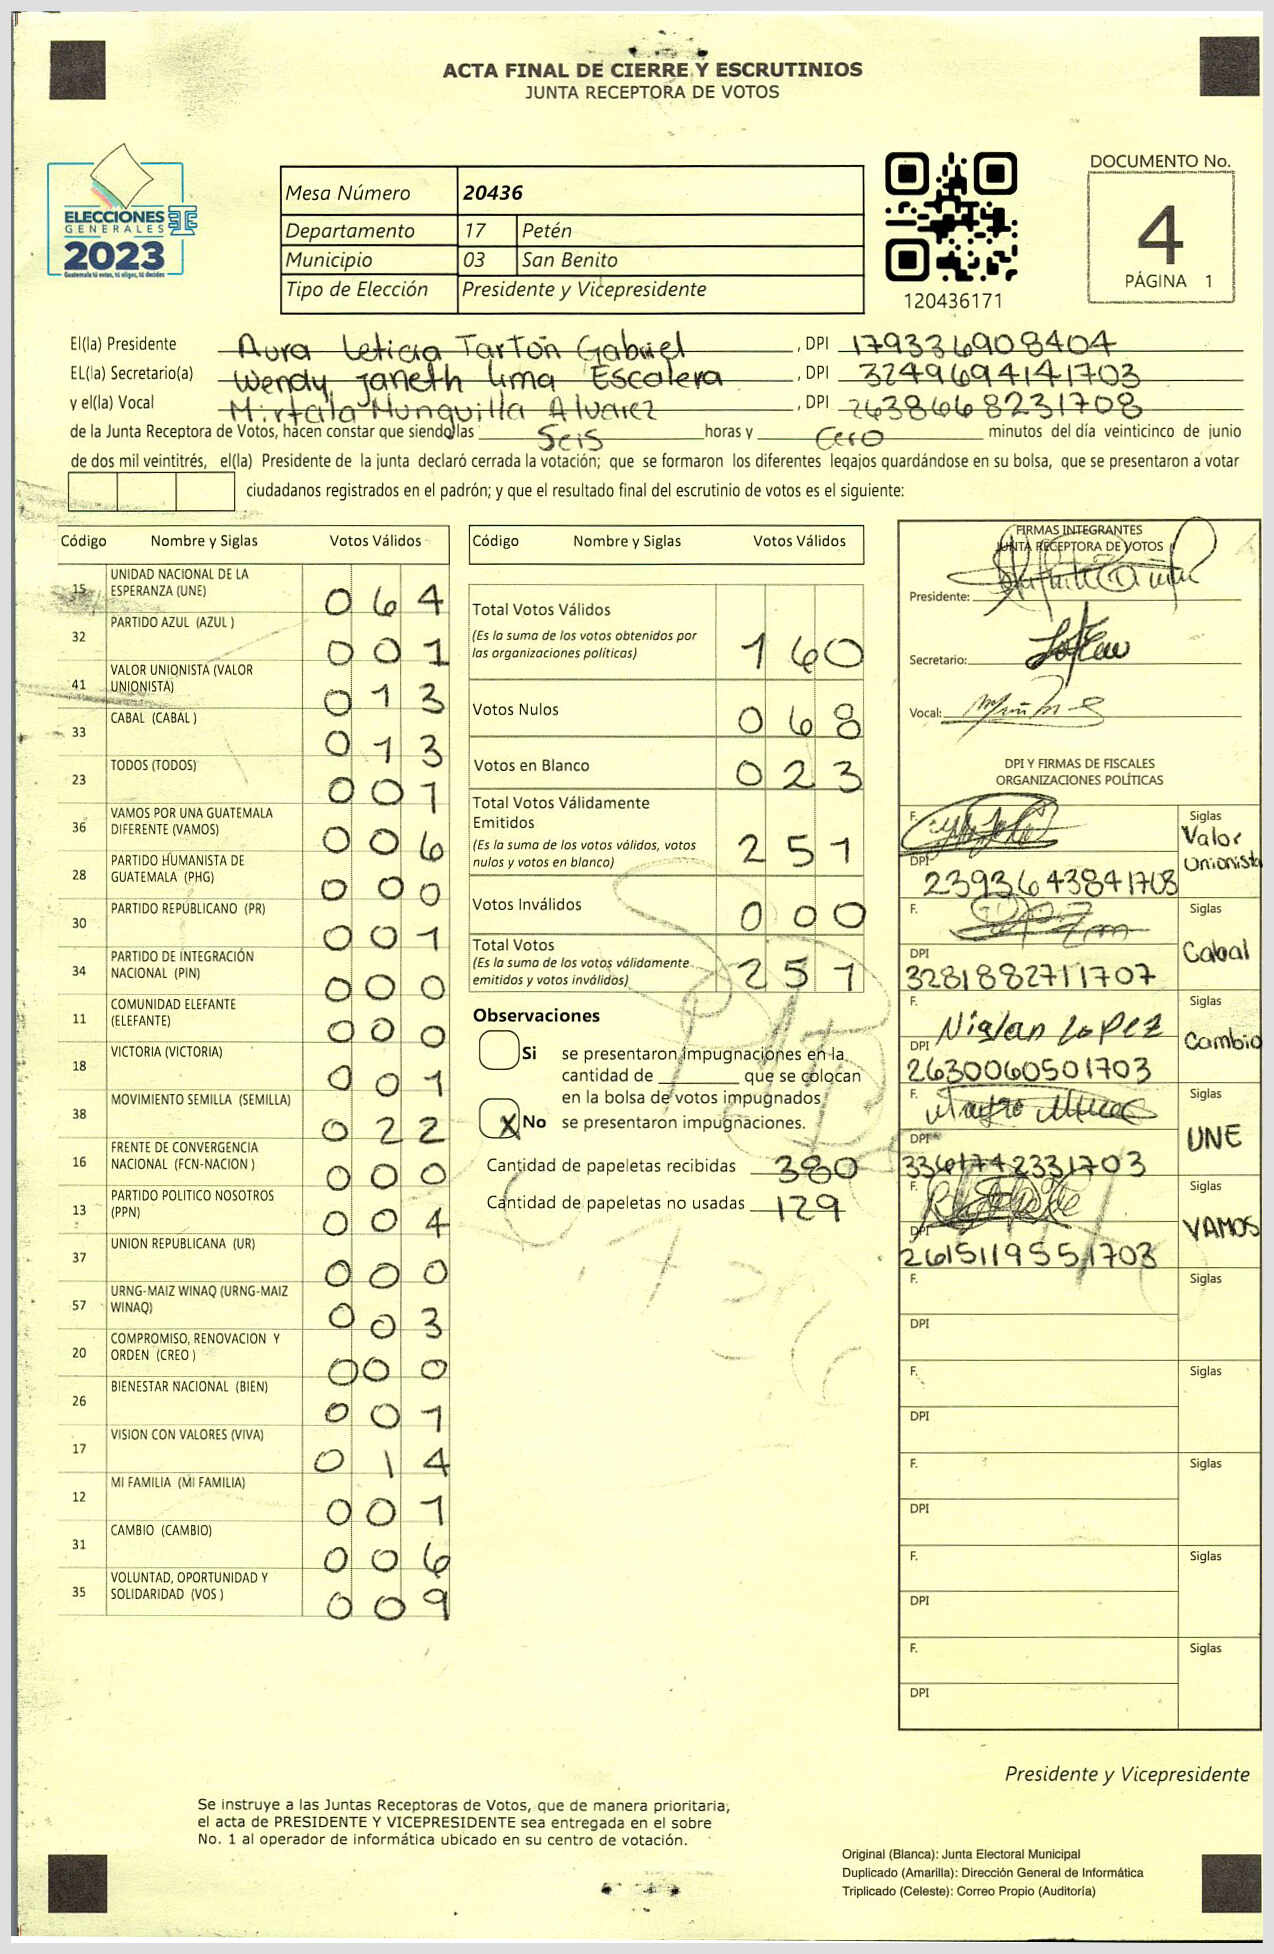 ACTA FINAL DE CIERRE Y ESCRUTINIOS
JUNTA RECEPTORA DE VOTOS
ELECCIONES
GENERALES
2023
Guatemala tú votas, tú eliges, tú decides
Mesa Número 20436
Departamento 17 Petén
Municipio 03 San Benito
Tipo de Elección Presidente y Vicepresidente
120436171
DOCUMENTO No.
4
PÁGINA 1
El(la) Presidente Aura Leticia Tartón Gabriel, DPI 179336908404
EL(la) Secretario(a) Wendy Janeth Lima Escalera, DPI 3249694141703
y el(la) Vocal Mirtala Munguilla Alvarez, DPI 2638668231708
de la Junta Receptora de Votos, hacen constar que siendo las Seis horas y Cero minutos del día veinticinco de junio
de dos mil veintitrés, el(la) Presidente de la junta declaró cerrada la votación; que se formaron los diferentes legajos quardándose en su bolsa, que se presentaron a votar
ciudadanos registrados en el padrón; y que el resultado final del escrutinio de votos es el siguiente:
Código Nombre y Siglas Votos Válidos
15 UNIDAD NACIONAL DE LA ESPERANZA (UNE) 064
32 PARTIDO AZUL (AZUL ) 001
41 VALOR UNIONISTA (VALOR UNIONISTA) 013
33 CABAL (CABAL ) 013
23 TODOS (TODOS) 001
36 VAMOS POR UNA GUATEMALA DIFERENTE (VAMOS) 006
28 PARTIDO HUMANISTA DE GUATEMALA (PHG) 000
30 PARTIDO REPUBLICANO (PR) 001
34 PARTIDO DE INTEGRACIÓN NACIONAL (PIN) 000
11 COMUNIDAD ELEFANTE (ELEFANTE) 000
18 VICTORIA (VICTORIA) 001
38 MOVIMIENTO SEMILLA (SEMILLA) 022
16 FRENTE DE CONVERGENCIA NACIONAL (FCN-NACION ) 000
13 PARTIDO POLITICO NOSOTROS (PPN) 004
37 UNION REPUBLICANA (UR) 000
57 URNG-MAIZ WINAQ (URNG-MAIZ WINAQ) 003
20 COMPROMISO, RENOVACION Y ORDEN (CREO ) 000
26 BIENESTAR NACIONAL (BIEN) 001
17 VISION CON VALORES (VIVA) 014
12 MI FAMILIA (MI FAMILIA) 001
31 CAMBIO (CAMBIO) 006
35 VOLUNTAD, OPORTUNIDAD Y SOLIDARIDAD (VOS ) 009
Código Nombre y Siglas Votos Válidos
Total Votos Válidos 160
(Es la suma de los votos obtenidos por
las organizaciones políticas)
Votos Nulos 068
Votos en Blanco 023
Total Votos Válidamente
Emitidos 251
(Es la suma de los votos válidos, votos
nulos y votos en blanco)
Votos Inválidos 000
Total Votos 251
(Es la suma de los votos válidamente
emitidos y votos inválidos)
Observaciones
Si se presentaron impugnaciones en la
cantidad de ________ que se colocan
en la bolsa de votos impugnados
X No se presentaron impugnaciones.
Cantidad de papeletas recibidas 380
Cantidad de papeletas no usadas 129
FIRMAS INTEGRANTES
JUNTA RECEPTORA DE VOTOS
Presidente:
Secretario:
Vocal:
DPI Y FIRMAS DE FISCALES
ORGANIZACIONES POLÍTICAS
F. Siglas Valor Unionista
DPI 2393643841708
F. Siglas Cabal
DPI 3281882711707
F. Nislan Lopez Siglas Cambio
DPI 2630060501703
F. Siglas UNE
DPI 3361742331703
F. Siglas VAMOS
DPI 2615119551703
F. Siglas
DPI
F. Siglas
DPI
F. Siglas
DPI
F. Siglas
DPI
F. Siglas
DPI
Presidente y Vicepresidente
Se instruye a las Juntas Receptoras de Votos, que de manera prioritaria,
el acta de PRESIDENTE Y VICEPRESIDENTE sea entregada en el sobre
No. 1 al operador de informática ubicado en su centro de votación.
Original (Blanca): Junta Electoral Municipal
Duplicado (Amarilla): Dirección General de Informática
Triplicado (Celeste): Correo Propio (Auditoría)